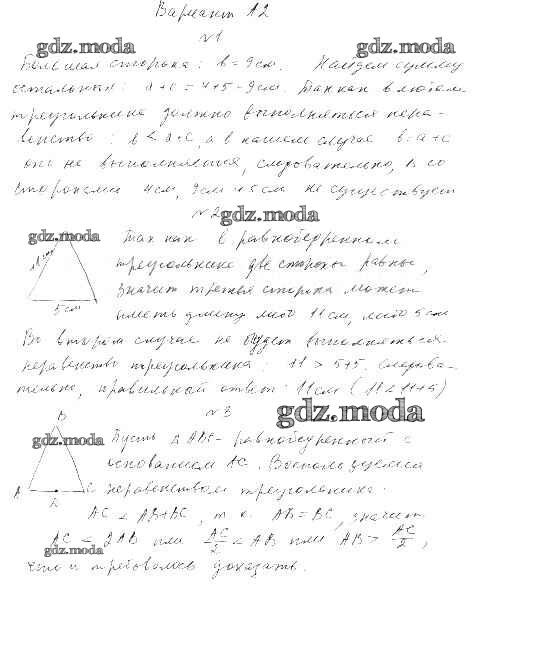 Вариант А2
№1
gdz.moda gdz.moda
Большая сторона: b = 9 см. Найдем сумму
остальных: a + c = 4+5 = 9 см. Так как в любом
треугольнике должно выполняться нера-
венство: b < a+c, а в нашем случае b = a+c
оно не выполняется, следовательно, Δ со
сторонами 4 см, 9 см и 5 см не существует
№2 gdz.moda
gdz.moda Так как в равнобедренном
11 см треугольнике две стороны равны,
значит третья сторона может
5 см иметь длину либо 11 см, либо 5 см
Во втором случае не будет выполняться
неравенство треугольника: 11 > 5+5. Следова-
тельно, правильный ответ: 11 см (11 < 11+5)
№3 gdz.moda
B
gdz.moda Пусть Δ ABC - равнобедренный с
основанием AC. Воспользуемся
A C неравенством треугольника:
AC < AB+BC, т.к. AB = BC, значит
AC < 2AB или AC/2 < AB или AB > AC/2,
gdz.moda
что и требовалось доказать.